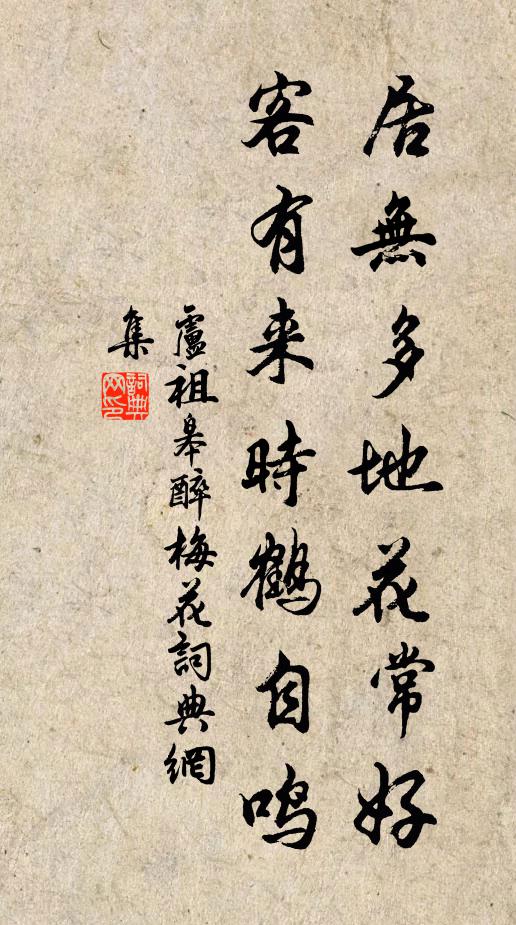 居無多地花常好
客有来時鶴自鸣
盧祖皋醉梅花詞典網
集
詞典
网印